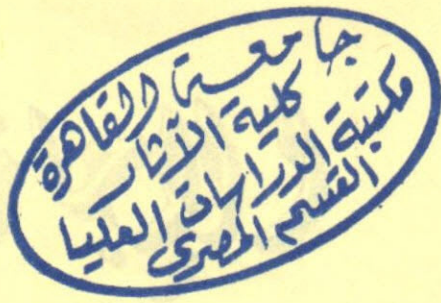 جامعة القاهرة
كلية الآثار
مكتبة الدراسات العليا
القسم المصري